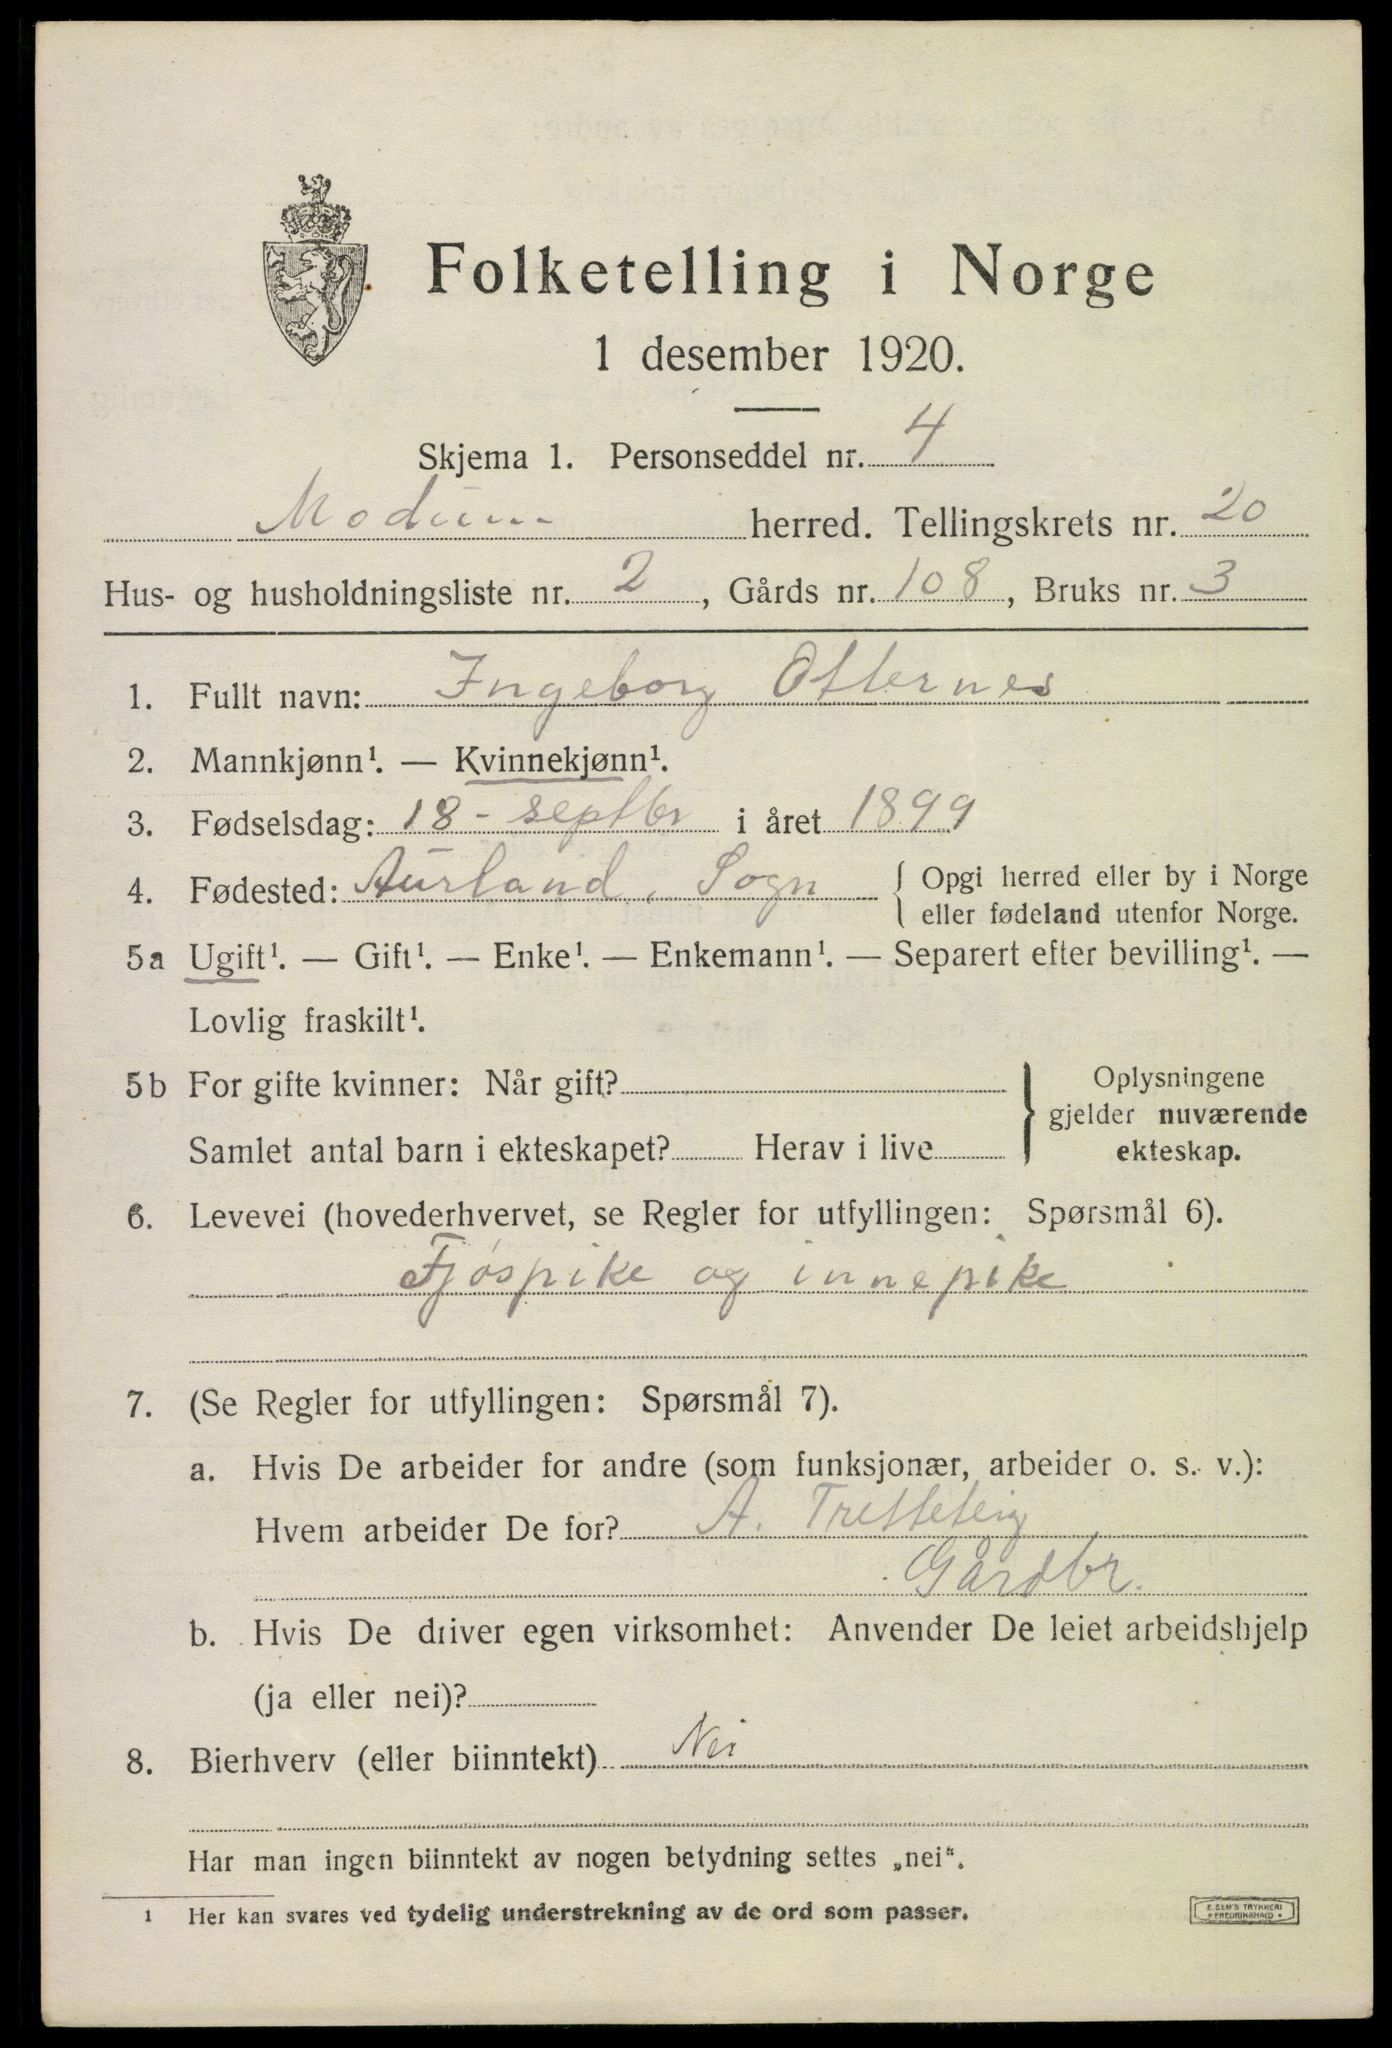 Folketelling i Norge
1 desember 1920.
Skjema 1. Personseddel nr. 4
Modum herred. Tellingskrets nr. 20
Hus- og husholdningsliste nr. 2, Gårds nr. 108, Bruks nr. 3
1. Fullt navn: Ingeborg Otternes
2. Mannkjønn¹. — Kvinnekjønn¹.
3. Fødselsdag: 18 - septbr i året 1899
4. Fødested: Aurland, Sogn { Opgi herred eller by i Norge
eller fødeland utenfor Norge.
5a Ugift¹. — Gift¹. — Enke¹. — Enkemann¹. — Separert efter bevilling¹. —
Lovlig fraskilt¹.
5b For gifte kvinner: Når gift? } Oplysningene
gjelder nuværende
Samlet antal barn i ekteskapet? Herav i live ekteskap.
6. Levevei (hovederhvervet, se Regler for utfyllingen: Spørsmål 6).
Fjøspike og innepike
7. (Se Regler for utfyllingen: Spørsmål 7).
a. Hvis De arbeider for andre (som funksjonær, arbeider o. s. v.):
Hvem arbeider De for? A. Tretteteig
Gårdbr.
b. Hvis De driver egen virksomhet: Anvender De leiet arbeidshjelp
(ja eller nei)?
8. Bierhverv (eller biinntekt) Nei
Har man ingen biinntekt av nogen betydning settes „nei“.
1 Her kan svares ved tydelig understrekning av de ord som passer.
E. SEM'S TRYKKERI
• FREDRIKSHALD •